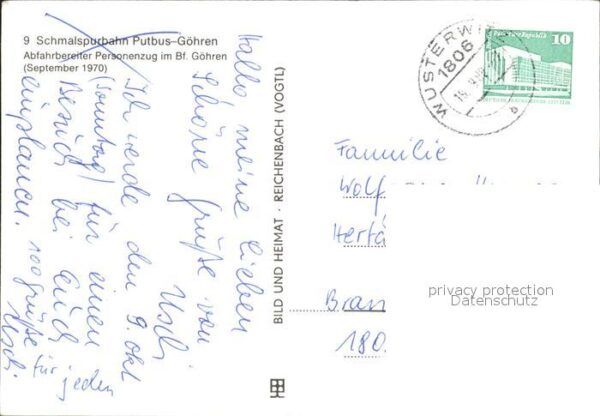 9 Schmalspurbahn Putbus–Göhren
Abfahrbereiter Personenzug im Bf. Göhren
(September 1970)
Hallo meine lieben
Schöne Grüße von
Uschi
Ich werde den 9. Okt
(Sonntag) für einen
Besuch bei Euch
einplanen. 100 Grüße für jeden
Uschi
BILD UND HEIMAT · REICHENBACH (VOGTL)
WUSTERW
1806
10
Familie
Wolf
Hertá
Bran
180
privacy protection
Datenschutz